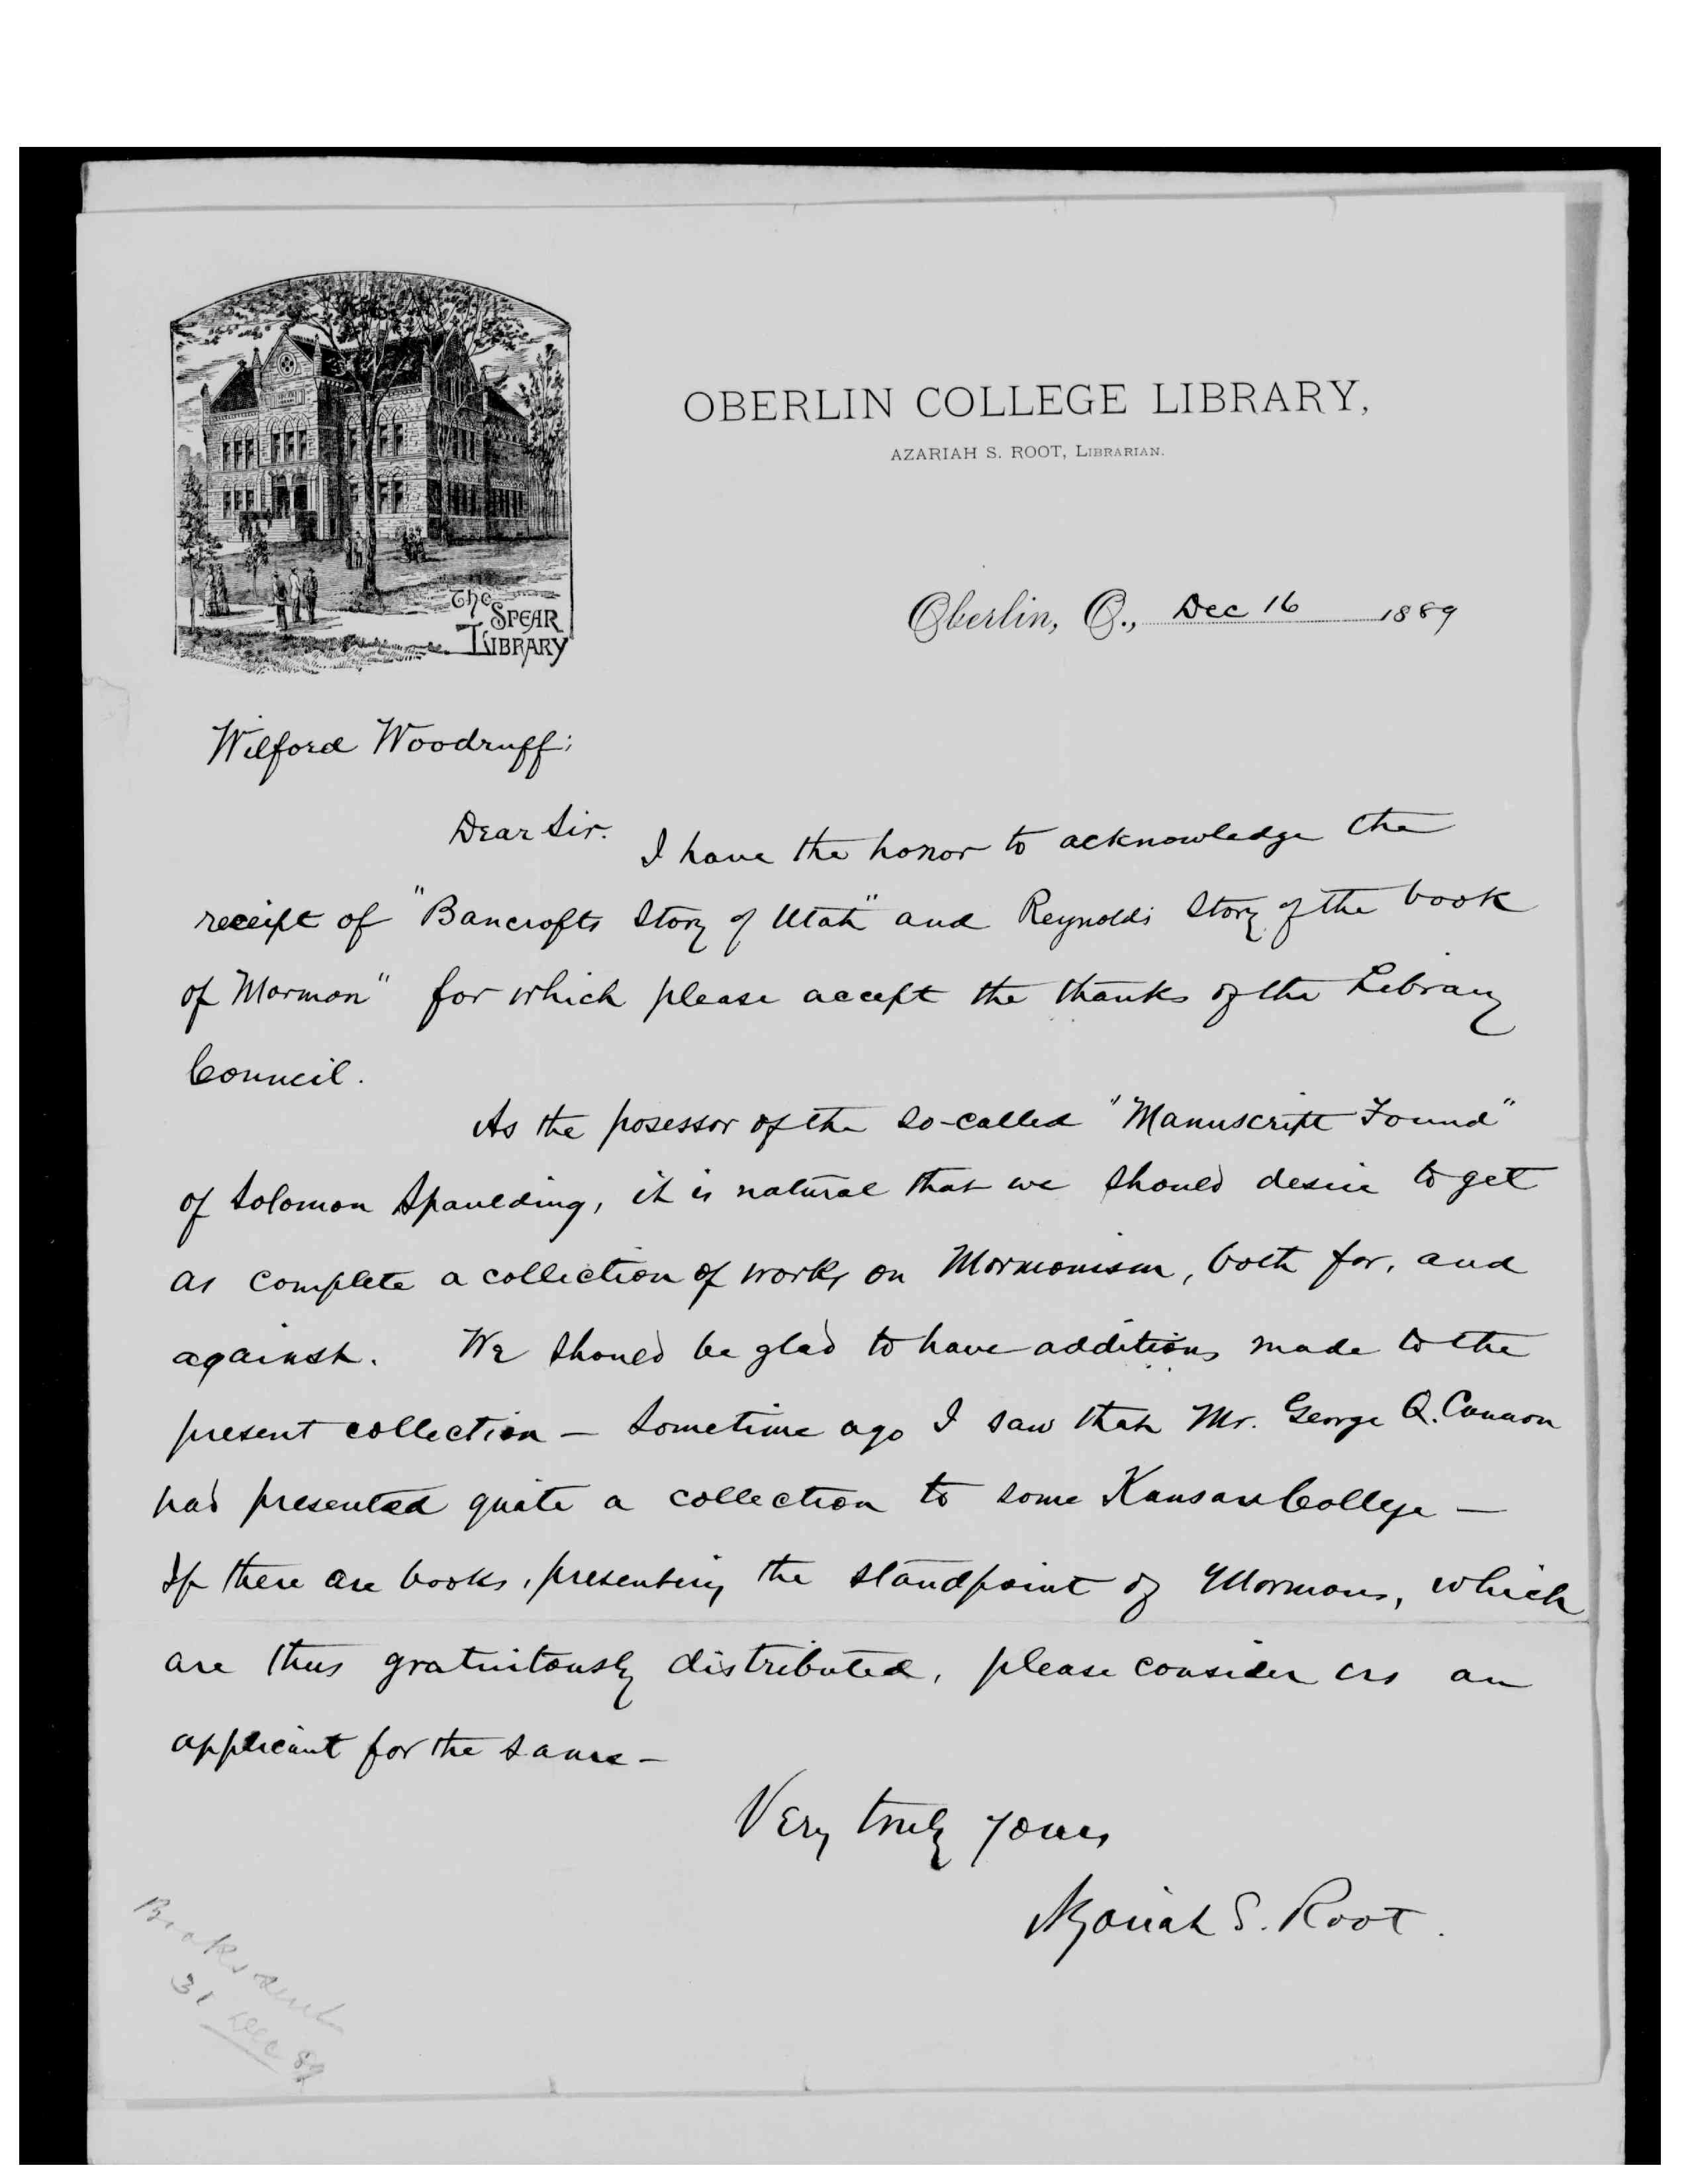 OBERLIN COLLEGE LIBRARY,
AZARIAH S. ROOT, LIBRARIAN.
The
SPEAR
LIBRARY
Oberlin, O., Dec 16 1889
Wilford Woodruff;
Dear Sir. I have the honor to acknowledge the
receipt of "Bancrofts Story of Utah" and Reynolds Story of the book
of Mormon" for which please accept the thanks of the Library
Council.
As the posessor of the so-called "Manuscript Found"
of Solomon Spaulding, it is natural that we should desire to get
as complete a collection of works on Mormonism, both for, and
against. We should be glad to have additions made to the
present collection — Sometime ago I saw that Mr. George Q. Cannon
had presented quite a collection to some Kansas College —
If there are books, presenting the standpoint of Mormons, which
are thus gratuitously distributed, please consider us an
applicant for the same —
Very truly yours
Azariah S. Root.
Books sent
31 Dec 89